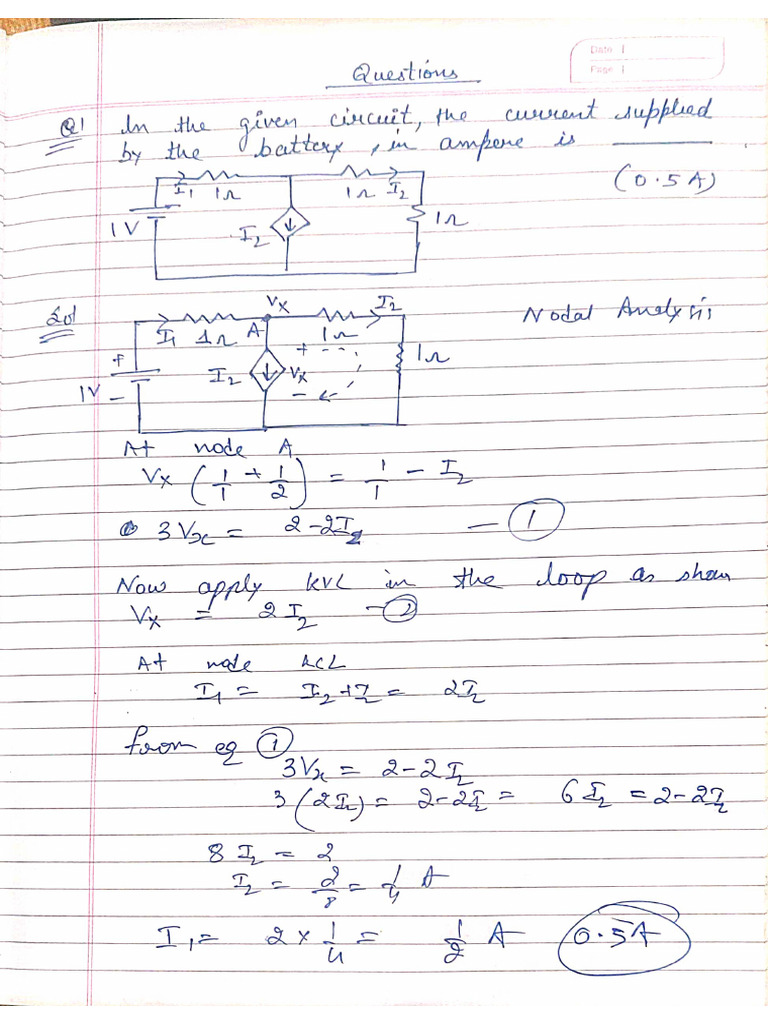 Date |
Page |
Questions
Q1 In the given circuit, the current supplied
by the battery, in ampere is ________
(0.5A)
I1 1Ω 1Ω I2
1V I2 1Ω
Sol Nodal Analysis
Vx I2
I1 1Ω A 1Ω
+ + 1Ω
1V I2 Vx
- -
At node A
Vx (1/1 + 1/2) = 1/1 - I2
3Vx = 2-2I2 — ①
Now apply KVL in the loop as shown
Vx = 2I2 — ②
At node KCL
I1 = I2+I2 = 2I2
from eq ①
3Vx = 2-2I2
3(2I2) = 2-2I2 = 6I2 = 2-2I2
8I2 = 2
I2 = 2/8 = 1/4 A
I1 = 2 × 1/4 = 1/2 A 0.5A